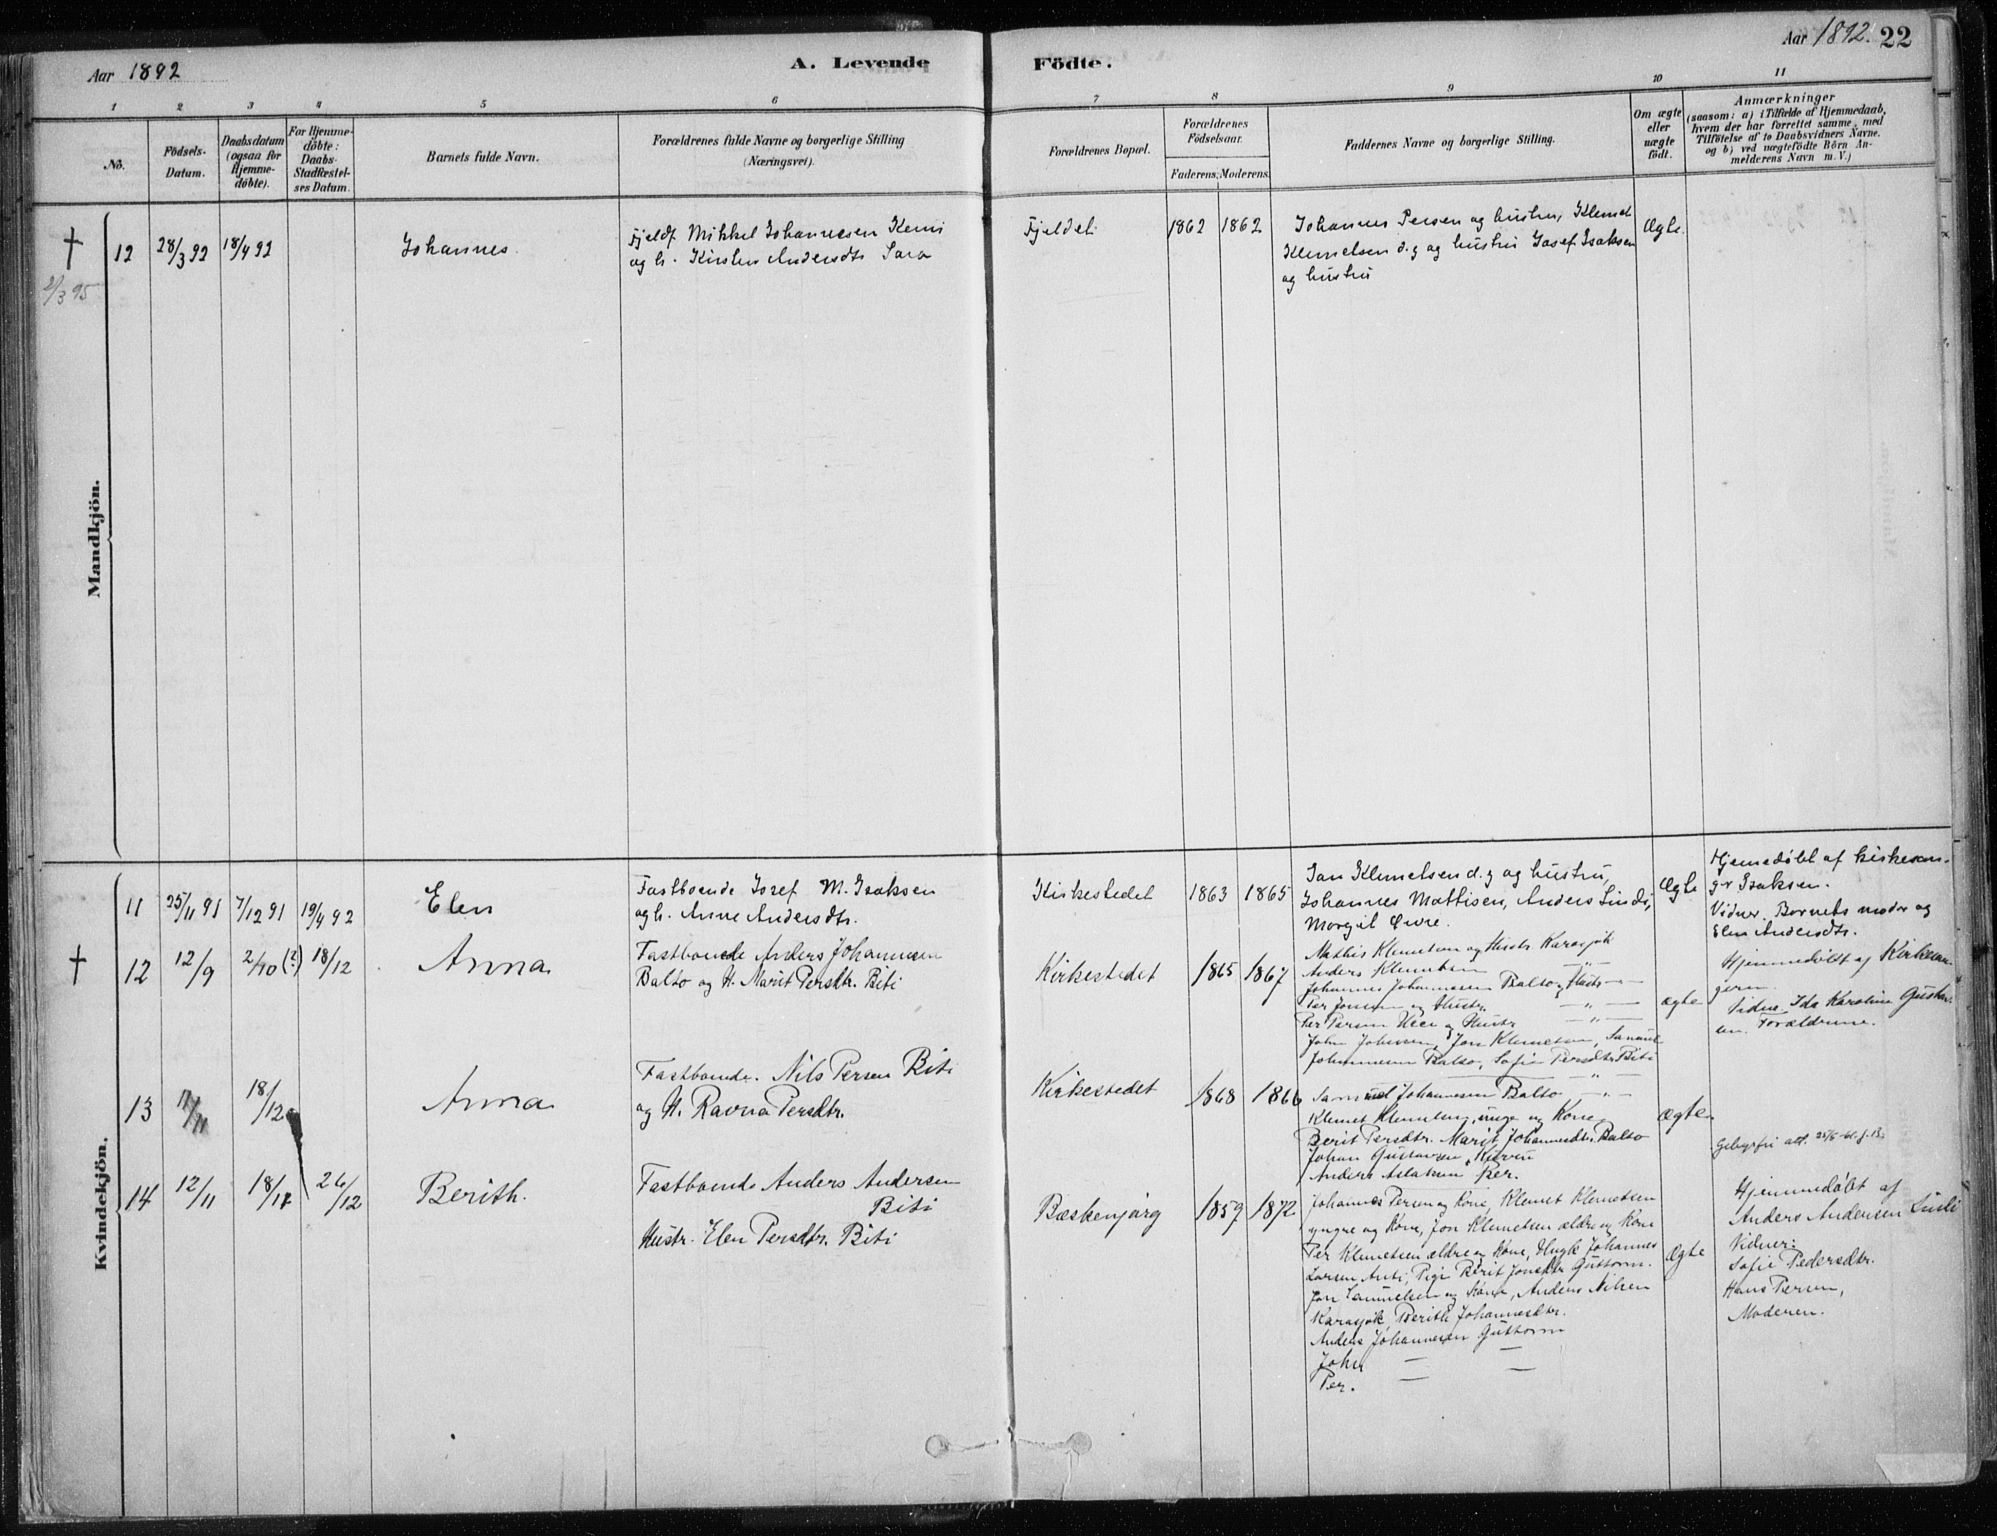 Aar 1892
A. Levende
Födte.
Aar 1892. 22
1 2 3 4 5 6 7 8 9 10 11
No.
Födsels-Datum.
Daabsdatum (ogsaa for Hjemme-döbte).
For Hjemme-döbte: Daabs-Stadfæstel-ses Datum.
Barnets fulde Navn.
Forældrenes fulde Navne og borgerlige Stilling (Næringsvei).
Forældrenes Bopæl.
Forældrenes Födselsaar.
Faderens. Moderens.
Faddernes Navne og borgerlige Stilling.
Om ægte eller uægte födt.
Anmærkninger
(saasom: a) i Tilfælde af Hjemmedaab,
hvem der har forrettet samme, med
Tilföielse af to Daabsvidners Navne.
og b) ved uægtefödte Börn An-
melderens Navn m. V.)
Mandkjön.
†
2/3 95
12 28/3 92 18/4 92 Johannes
Fjeldf. Mikkel Johannesen Kemi
og h. Kirsten Andersdtr Sara
Fjeldet 1862 1862
Johannes Persen og hustru, Klemet
Klemetsen d.y og hustru Josef Isaksen
og hustru
Ægte.
Kvindekjön.
11 25/11 91 7/12 91 19/4 92 Elen
Fastboende Josef M. Isaksen
og h. Anne Andersdtr.
Kirkestedet 1863 1865
Jon Klemetsen d.y og hustru,
Johannes Mattisen, Anders
Margit
Ægte
Hjemedöbt af kirkesan-
ger Isaksen.
Vidner. Barnets moder og
Elen Andersdtr.
†
12 12/9 2/10 (?) 18/12 Anna
Fastboende Anders Johannesen
Balto og H. Marit Persdtr. Biti
Kirkestedet 1865 1867
Mathis Klemetsen og Hustr Karasjok
Anders Klemetsen — " —
Johannes Johannesen Balto og Hustr — " —
Per Jonsen og Hustr. — " —
Per Persen og Hustr — " —
John Johnsen, Jon Klemetsen, Samuel
Johannesen Balto, Sofie Persdtr Biti
ægte
Hjemmedöbt af Kirkesan-
geren.
Vidne Ida Karoline Gustav-
sen. Forældrene.
13 11/11 18/12 Anna
Fastboende. Nils Persen Biti
og H. Ravna Persdtr.
Kirkestedet 1868 1866
Samuel Johannesen Balto — " —
Klemet Klemetsen, unge og Kone
Berit Persdtr. Marit Johannesdtr. Balto
Johan Gustavsen
Anders Aslaksen Per.
Ægte
Gebyrfri att. 25/5-
14 12/11 18/12 26/12 Berith.
Fastboende Anders Andersen
Biti
Hustr. Elen Persdtr. Biti
Bæskenjarg 1859 1872
Johannes Persen og Kone, Klemet Klemetsen
yngre og Kone, Jon Klemetsen ældre og Kone
Per Klemetsen ældre og Kone, Ungk Johannes
Larsen Anti, Pige Berit Jonsdtr Guttorm.
Jon Samuelsen og Kone, Anders Nilsen
Karasjok, Berith Johannesdtr.
Anders Johannesen Guttorm
John — —
Per. — —
Ægte
Hjemmedöbt af
Anders Andersen
Vidner:
Sofie Pedersdtr.
Hans Persen,
Moderen.